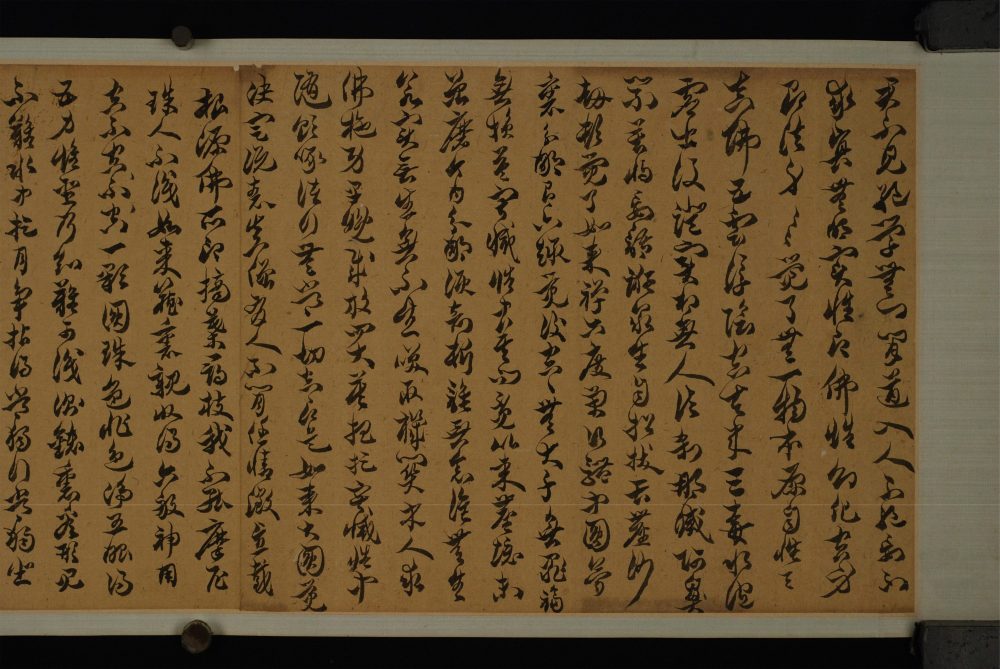 君不見絕學無為閒道人不除妄不
求真無明實性即佛性幻化空身
即法身々覺了無一物本源自性天
真佛五雲浮陰空去來三毒水泡
虛出沒證實相無人法剎那滅阿鼻
業若將妄語誑眾生自招拔舌塵沙
劫頓覺了如來禪六度萬行體中圓夢
裏分明有六趣覺後空々無大千無罪福
無損益寂滅性中莫問覓比來塵境未
曾磨今日分明須剖析誰無念誰無生
若實無生無不生喚取機關木人求
佛施功早晚成放四大莫把捉寂滅性中
隨飲啄諸行無常一切空即是如來大圓覺
決定說表真僧有人不肯任情徵直截
根源佛所印摘葉尋枝我不能摩尼
珠人不識如來藏裏親收得六般神用
空不空一顆圓珠色非色淨五眼得
五力惟證乃知難可測鏡裏看形見
不難水中捉月爭拈得常獨行常獨步